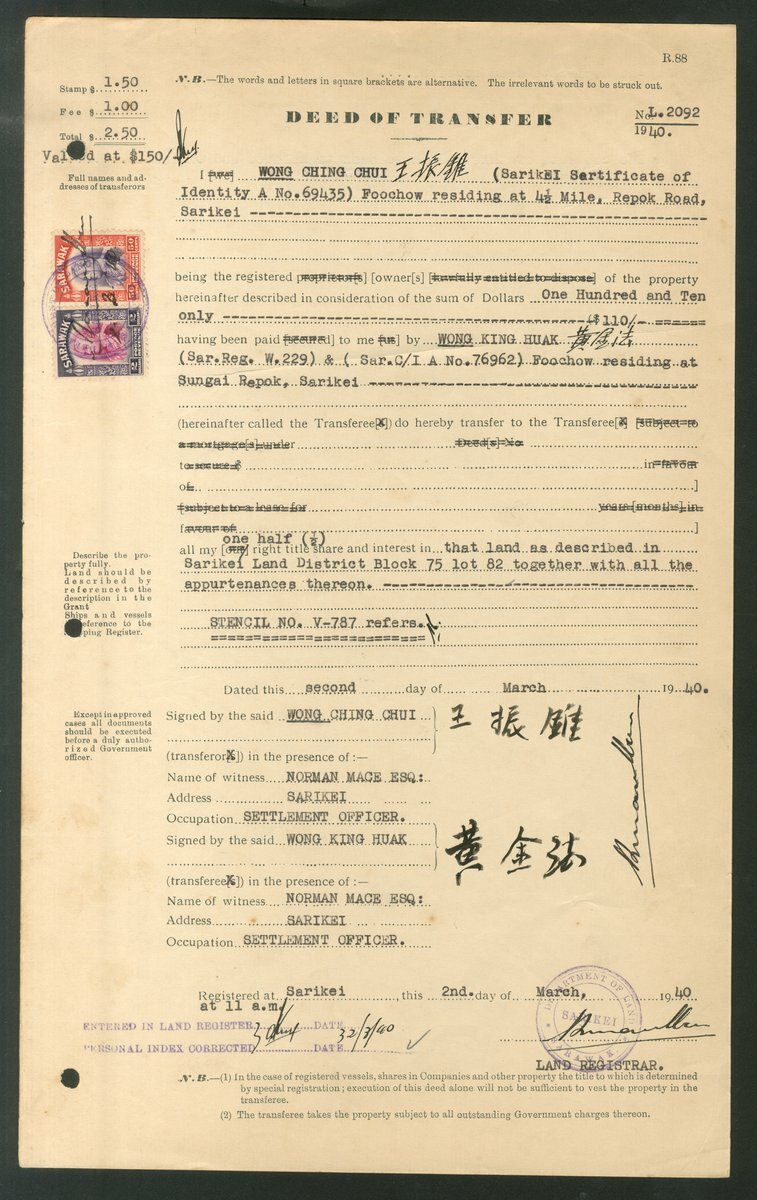 R.88
Stamp $ 1.50
Fee $ 1.00
Total $ 2.50
Valued at $150/-
Full names and ad-
dresses of transferors
N.B.—The words and letters in square brackets are alternative. The irrelevant words to be struck out.
DEED OF TRANSFER
No. L.2092
1940.
I [we] WONG CHING CHUI 王振錐 (SarikEI Sertificate of
Identity A No.69435) Foochow residing at 4½ Mile, Repok Road,
Sarikei
SARAWAK
50
SARAWAK
being the registered [proprietor[s] [owner[s] [lawfully entitled to dispose] of the property
hereinafter described in consideration of the sum of Dollars One Hundred and Ten
only ($ 110/-
having been paid [secured] to me [us] by WONG KING HUAK 黃金法
(Sar.Reg. W.229) & ( Sar.C/I A No.76962) Foochow residing at
Sungai Repok, Sarikei
(hereinafter called the Transferee[X]) do hereby transfer to the Transferee[X] [subject to
a mortgage[s] under Deed[s] No
to secure $ in favour
of ]
[subject to a lease for years [months] in
favour of ]
one half (½)
all my [our] right title share and interest in that land as described in
Sarikei Land District Block 75 lot 82 together with all the
appurtenances thereon.
Describe the pro-
perty fully.
Land should be
described by
reference to the
description in the
Grant
Ships and vessels
reference to the
Shipping Register.
STENCIL NO. V-787 refers.
Dated this second day of March 1940.
Except in approved
cases all documents
should be executed
before a duly autho-
rized Government
officer.
Signed by the said WONG CHING CHUI 王振錐
(transferor[X]) in the presence of :—
Name of witness NORMAN MACE ESQ:
Address SARIKEI
Occupation SETTLEMENT OFFICER.
Signed by the said WONG KING HUAK 黃金法
(transferee[X]) in the presence of :—
Name of witness NORMAN MACE ESQ:
Address SARIKEI
Occupation SETTLEMENT OFFICER.
Registered at Sarikei this 2nd. day of March, 1940
at 11 a.m.
DEPARTMENT OF LANDS
SARIKEI
SARAWAK
ENTERED IN LAND REGISTER DATE
PERSONAL INDEX CORRECTED DATE
LAND REGISTRAR.
N.B.—(1) In the case of registered vessels, shares in Companies and other property the title to which is determined
by special registration ; execution of this deed alone will not be sufficient to vest the property in the
transferee.
(2) The transferee takes the property subject to all outstanding Government charges thereon.